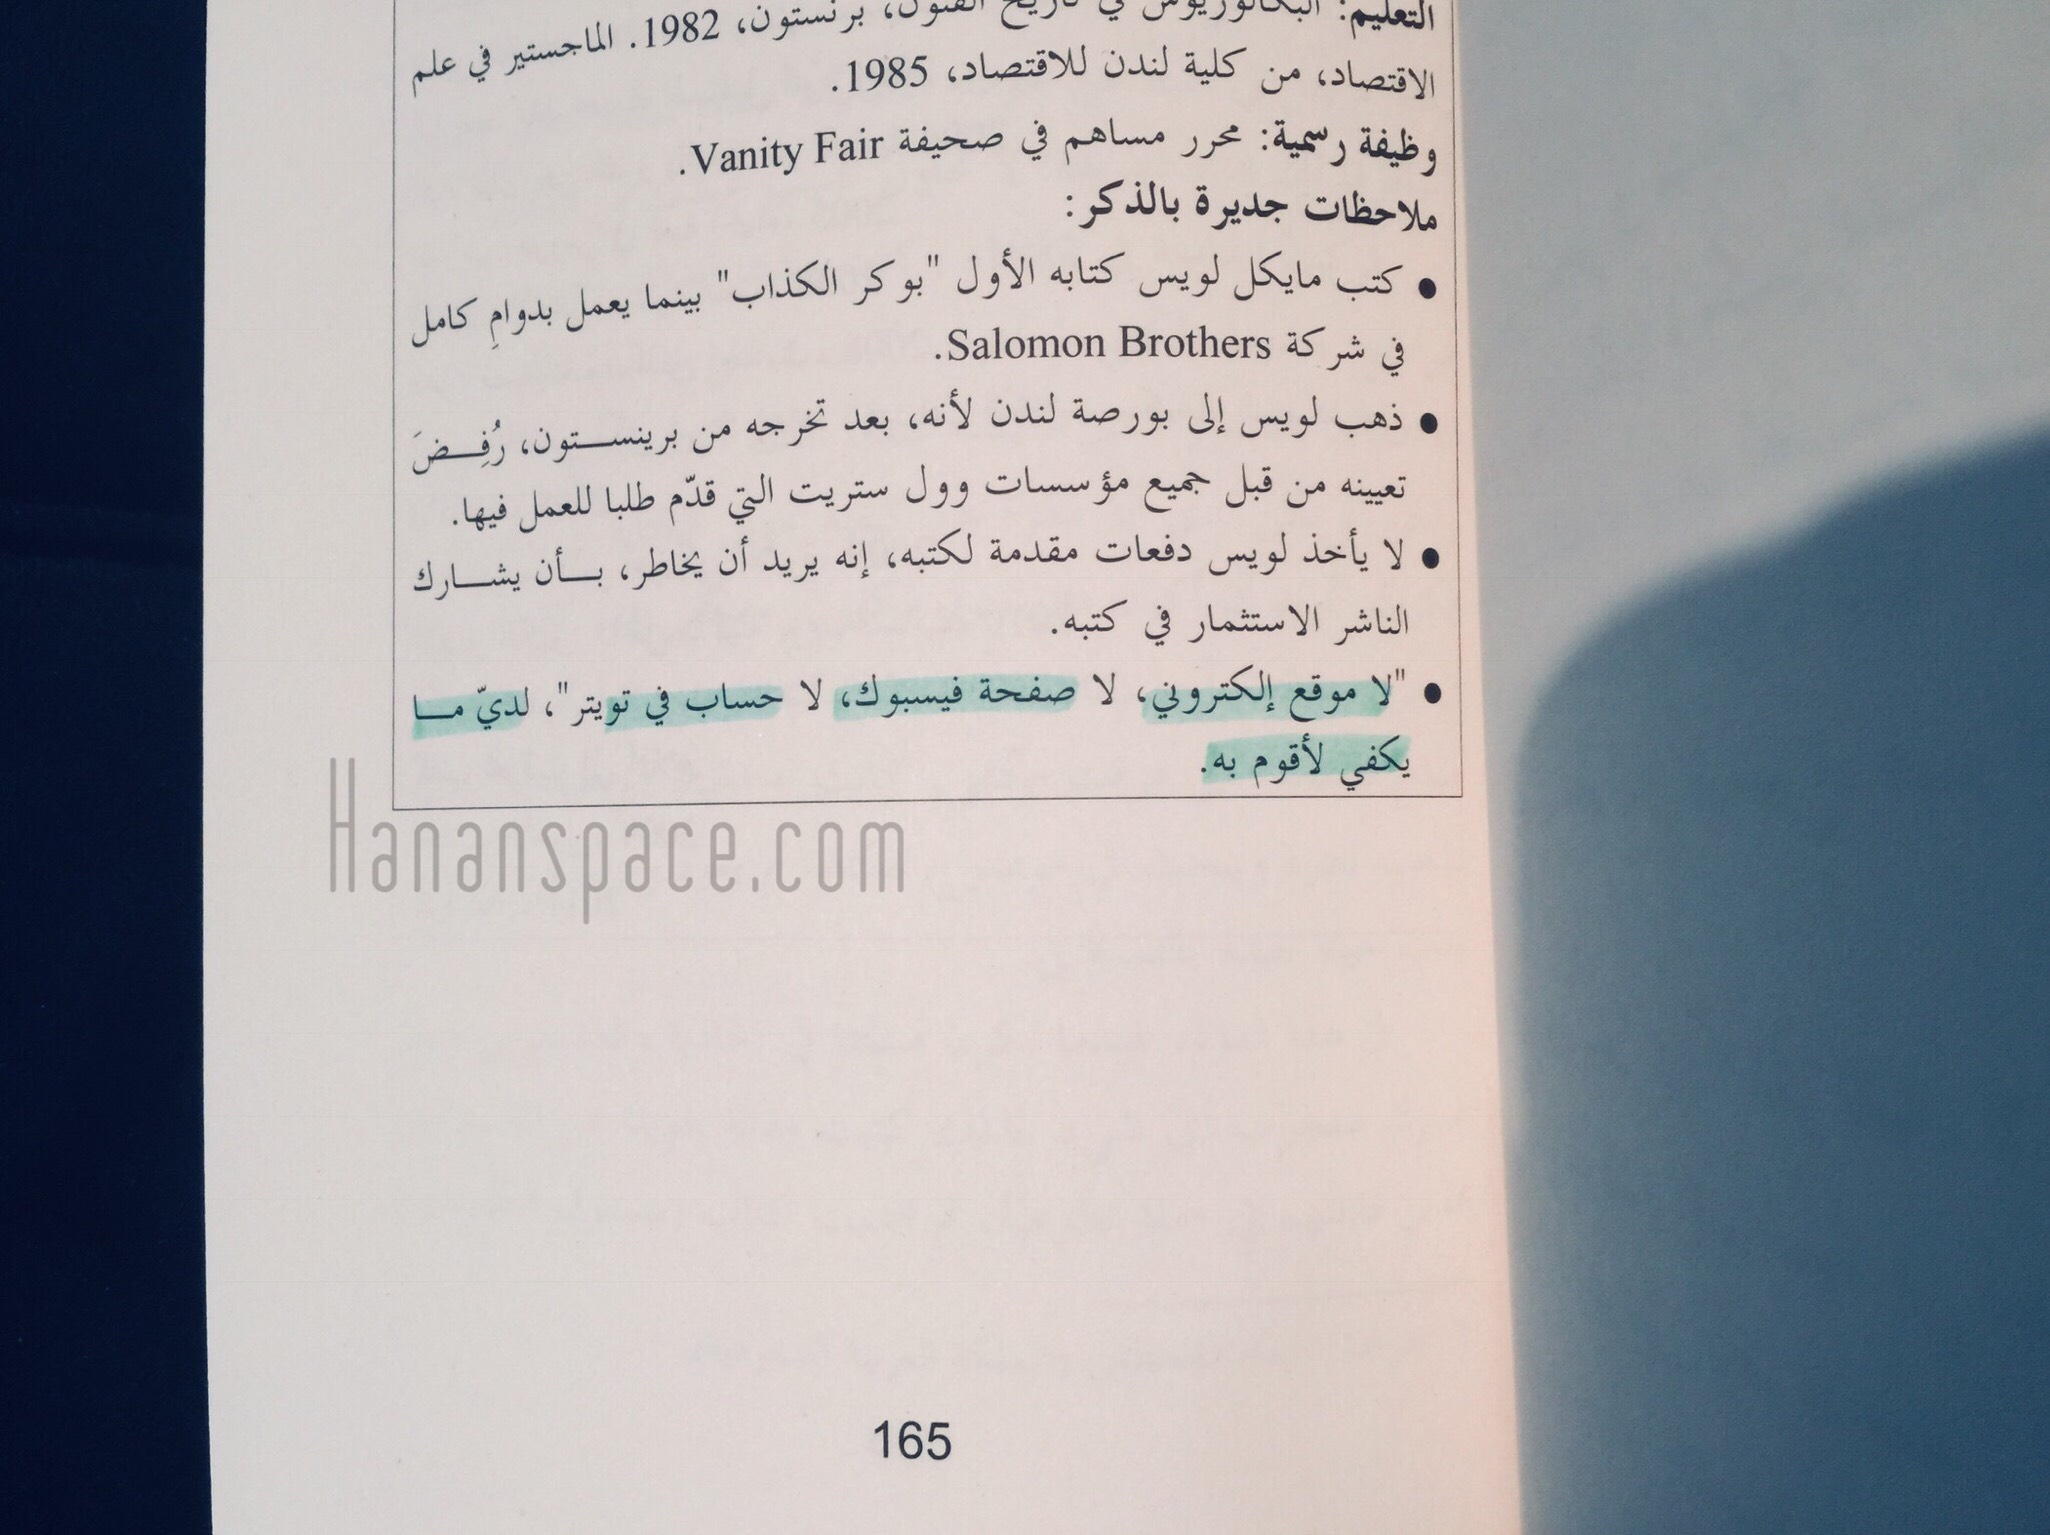 التعليم: البكالوريوس في تاريخ الفنون، برنستون، 1982. الماجستير في علم
الاقتصاد، من كلية لندن للاقتصاد، 1985.
وظيفة رسمية: محرر مساهم في صحيفة Vanity Fair.
ملاحظات جديرة بالذكر:
● كتب مايكل لويس كتابه الأول "بوكر الكذاب" بينما يعمل بدوامِ كامل
في شركة Salomon Brothers.
● ذهب لويس إلى بورصة لندن لأنه، بعد تخرجه من برينستون، رُفِضَ
تعيينه من قبل جميع مؤسسات وول ستريت التي قدّم طلبا للعمل فيها.
● لا يأخذ لويس دفعات مقدمة لكتبه، إنه يريد أن يخاطر، بأن يشارك
الناشر الاستثمار في كتبه.
● "لا موقع إلكتروني، لا صفحة فيسبوك، لا حساب في تويتر"، لديّ ما
يكفي لأقوم به.
Hananspace.com
165